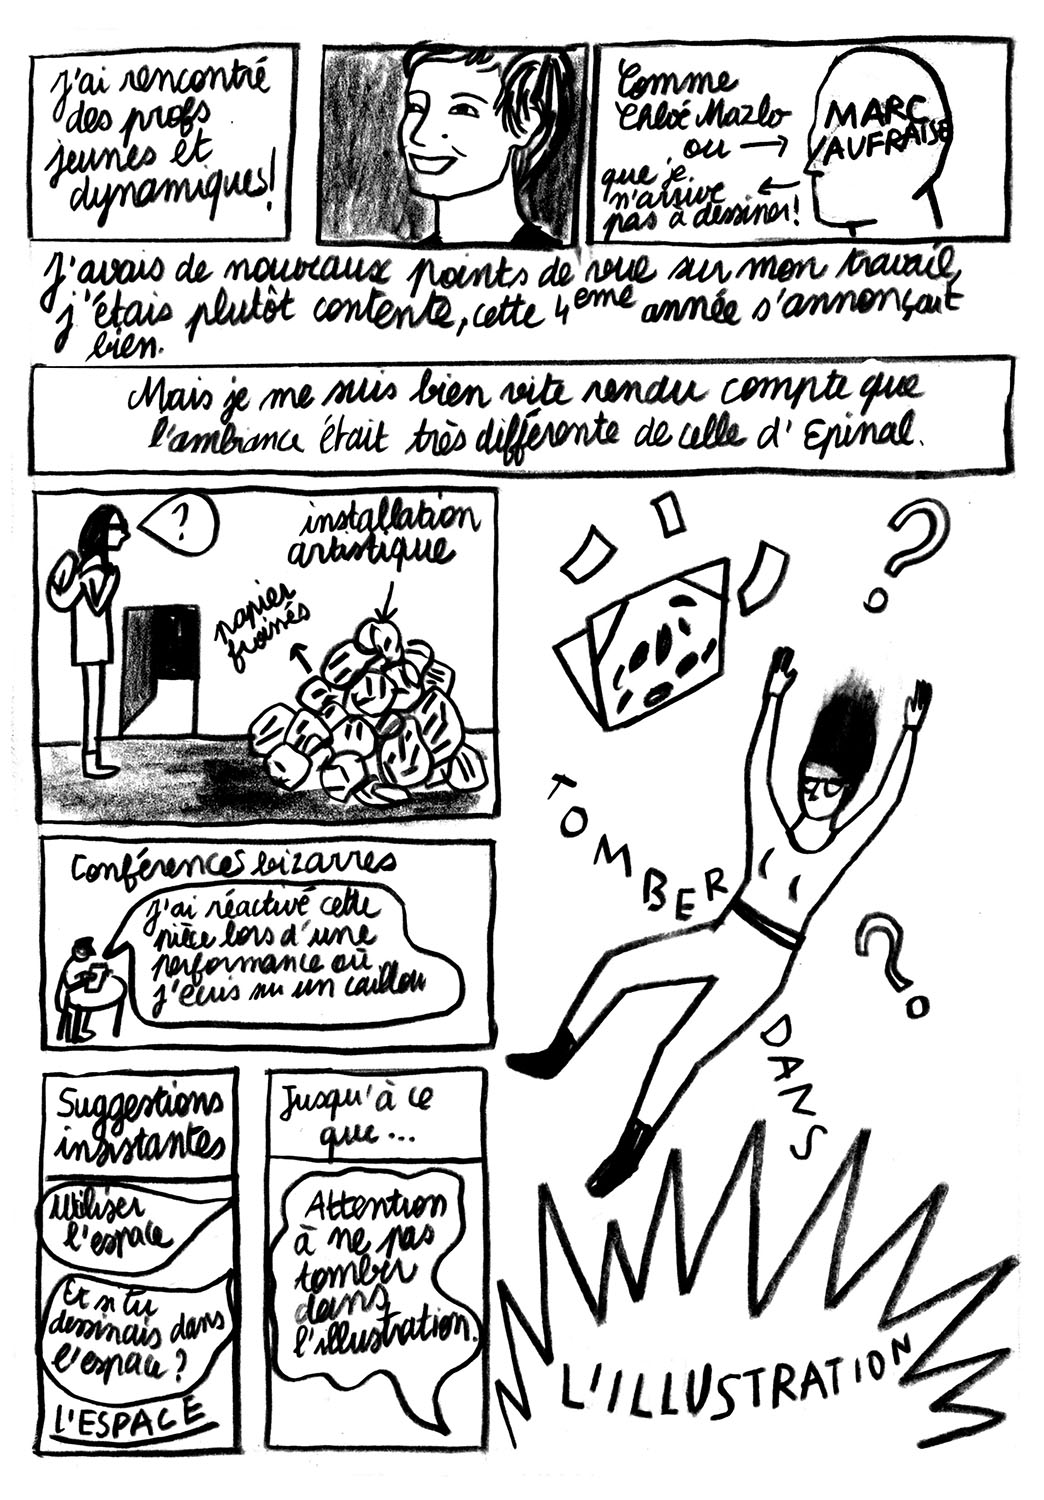 J'ai rencontré
des profs
jeunes et
dynamiques!
Comme
Chloé Mazlo
ou →
que je
n'arrive
pas à dessiner!
MARC
VAUFRAISE
J'avais de nouveaux points de vue sur mon travail,
j'étais plutôt contente, cette 4eme année s'annonçait
bien.
Mais je me suis bien vite rendu compte que
l'ambiance était très différente de celle d'Epinal.
?
installation
artistique
papier
froissés
Conférences bizarres
J'ai réactivé cette
pièce lors d'une
performance où
j'écris sur un caillou
Suggestions
insistantes
Utiliser
l'espace
Et si tu
dessinais dans
l'espace?
L'ESPACE
Jusqu'à ce
que...
Attention
à ne pas
tomber
dans
l'illustration.
?
TOMBER
?
DANS
L'ILLUSTRATION